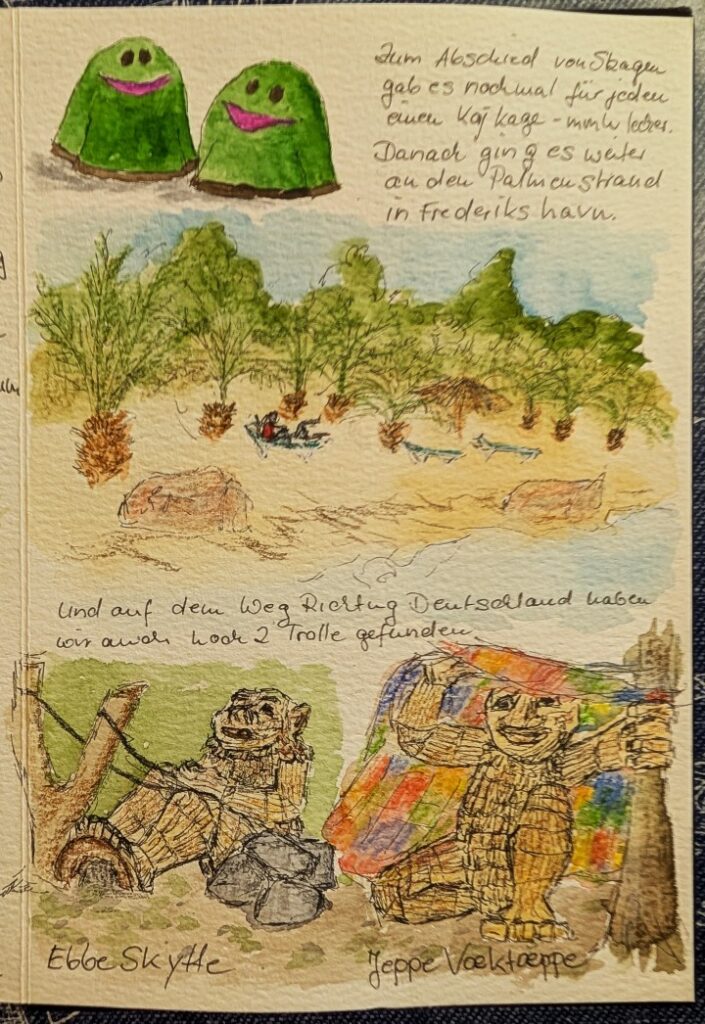 Zum Abschied von Skagen
gab es nochmal für jeden
einen Kaj kage - mmh lecker.
Danach ging es weiter
an den Palmenstrand
in Frederikshavn.
Und auf dem Weg Richtung Deutschland haben
wir auch noch 2 Trolle gefunden.
Ebbe Skytte
Jeppe Væktæppe